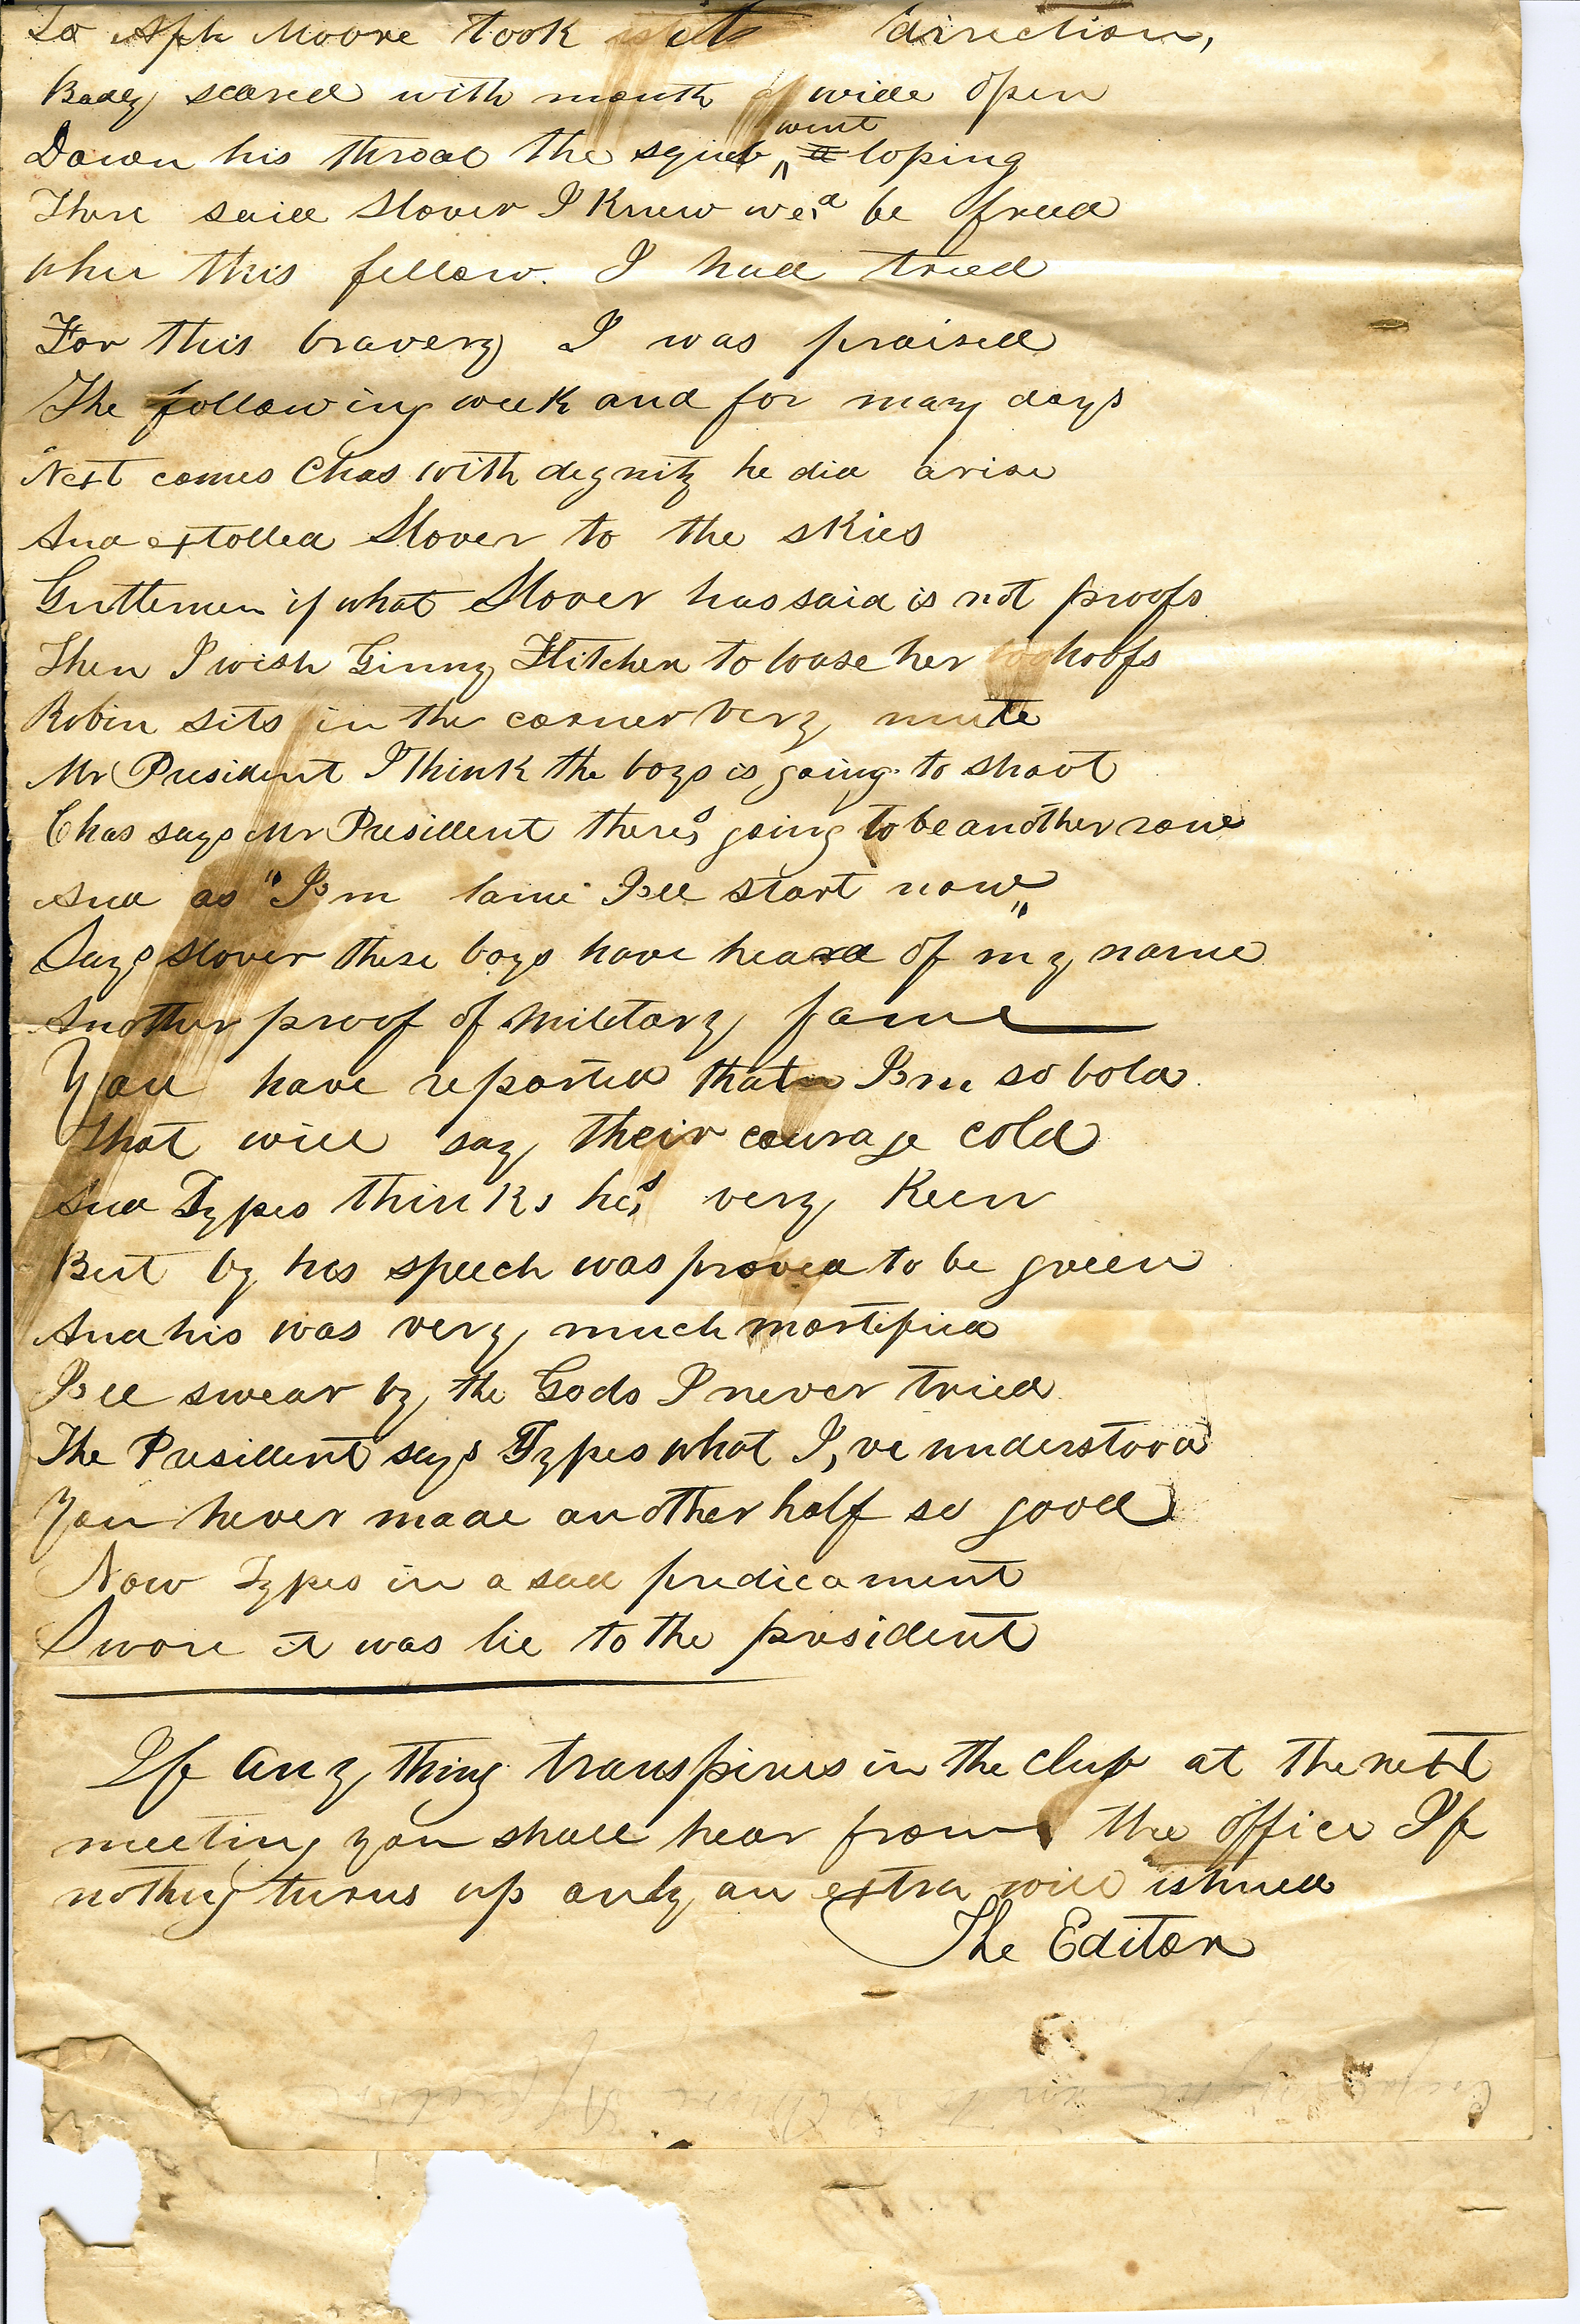 To Aph Moore took its direction,
Badly scared with mouth wide open
Down his throat the squib went a loping
There said Stover I knew we,d be freed
when this fellow. I had tried
For this bravery I was praised
The following week and for many days
Next comes Chas with degnity he did arise
And extolled Stover to the skies
Gentlemen if what Stover has said is not proofs
Then I wish Ginny Flitcher to loose her hoofs
Robin sits in the corner very mute
Mr President I think the boys is going to shoot
Chas says Mr President there,s going to be another row
And as "I,m lame I,ll start now"
Says Stover these boys have heard of my name
Another proof of military fame
You have reported that I,m so bold
That will say their courage cold
And Types thinks he,s very keen
But by his speech was proved to be green
And his was very much mortified
I,ll swear by the Gods I never tried
The President says Types what I,ve understood
You never made another half so good
Now Types in a sad predicament
Swore it was lie to the president
If any thing transpires in the club at the next
meeting you shall hear from the office If
nothing turns up only an extra will ishued
The Editor